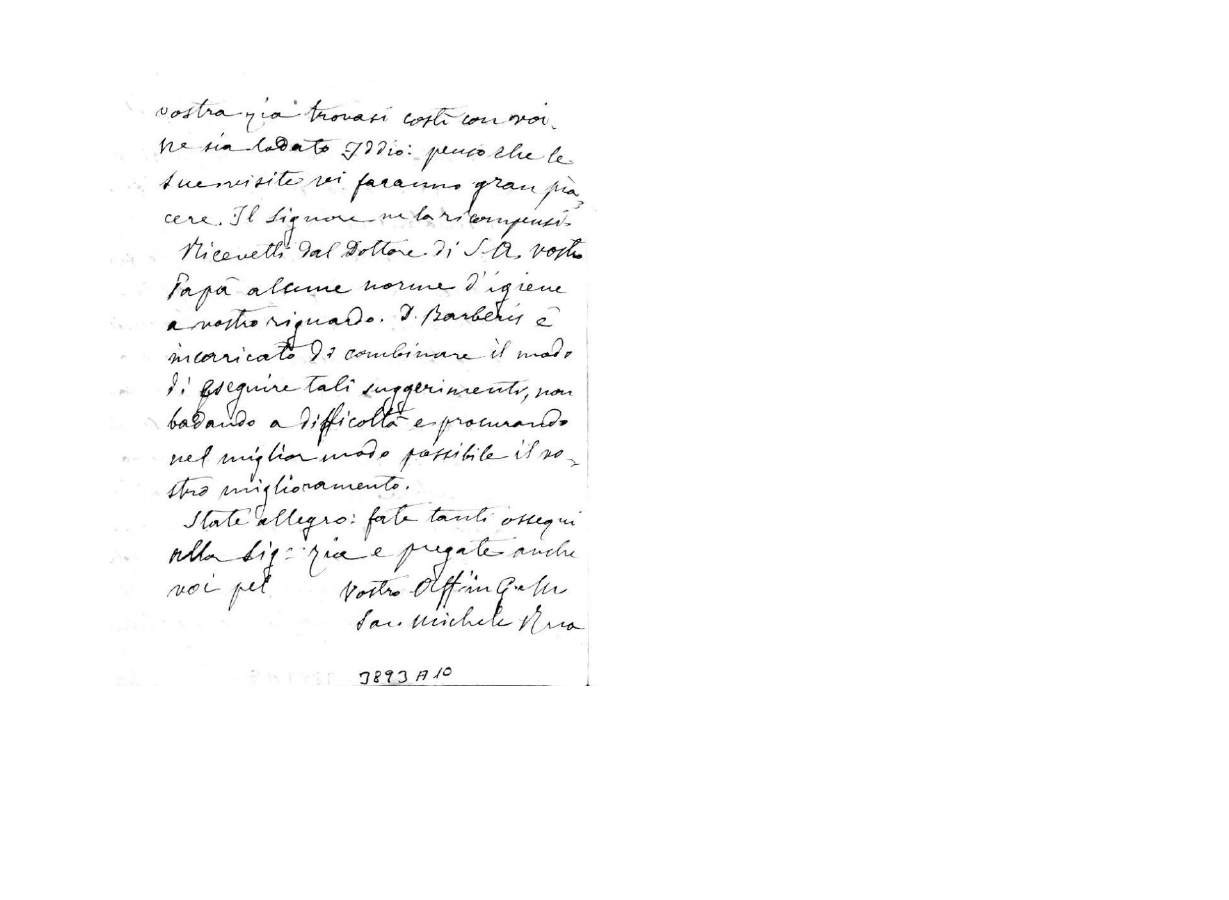 vostra zia trovasi costì con voi.
ne sia lodato Iddio: penso che le
sue visite vi faranno gran pia
cere. Il Signore ne la ricompensi.
Ricevetti dal Dottore di S. A. vostro
Papà alcune norme d'igiene
a vostro riguardo. D. Barberis è
incarricato di combinare il modo
di eseguire tali suggerimenti, non
badando a difficoltà e procurando
nel miglior modo possibile il vo-
stro miglioramento.
State allegro: fate tanti ossequi
alla Sig: zia e pregate anche
voi pel Vostro Aff in G.
Sac. Michele Rua
3893 A 10